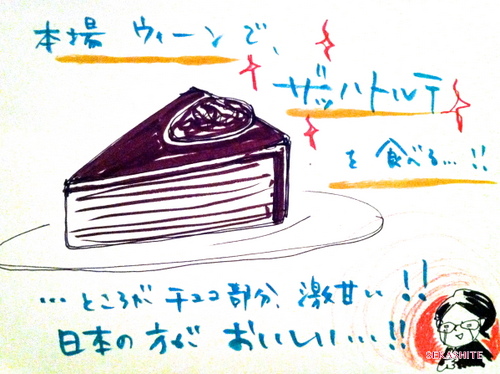 本場 ウィーンで、
ザッハトルテ
を食べる…!!
…ところが チョコ部分、激甘い!!
日本の方が おいしい…!!
SEKASHITE